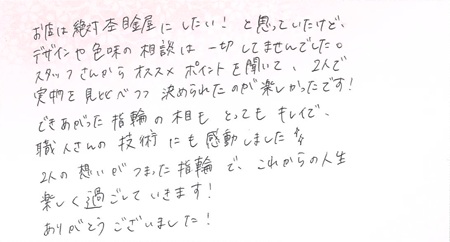 お店は絶対杢目金屋にしたい！と思っていたけど、
デザインや色味の相談は一切してませんでした。
スタッフさんからオススメポイントを聞いて、2人で
実物を見比べつつ決められたのが楽しかったです！
できあがった指輪の相もとってもキレイで、
職人さんの技術にも感動しました
2人の想いがつまった指輪で、これからの人生
楽しく過ごしていきます！
ありがとうございました！